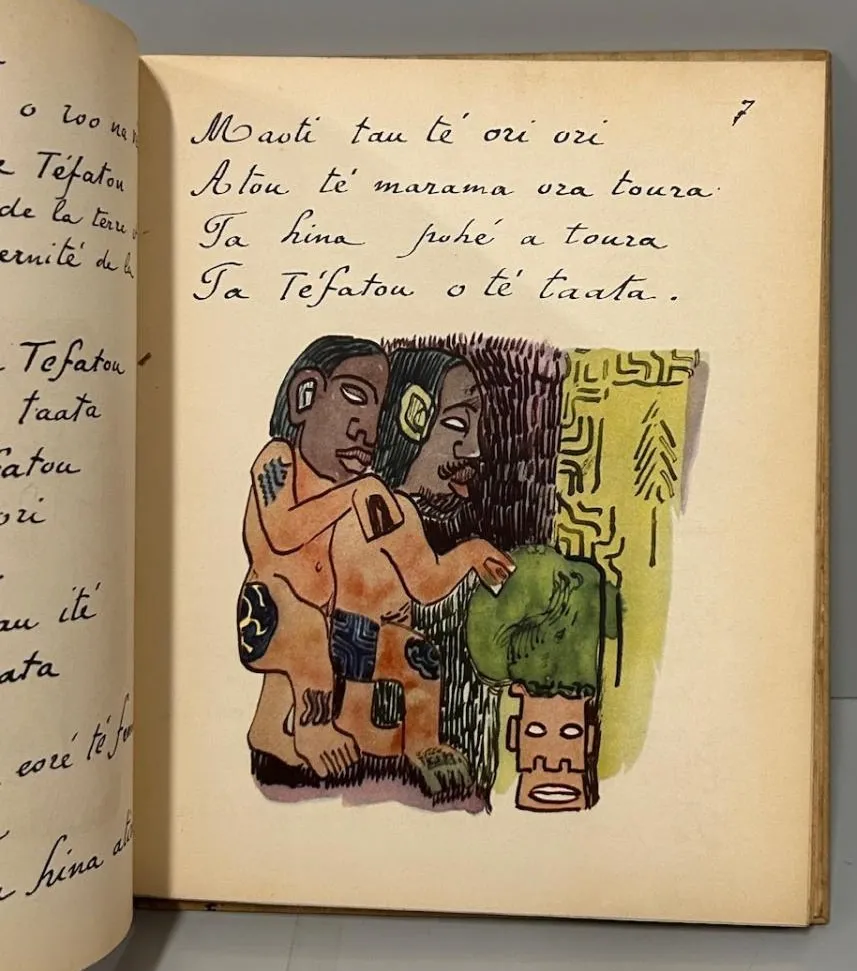 o roo na
Téfatou
de la terre
ernité de la
Tefatou
taata
fatou
ori
au ité
ata
eoré té
hina
7
Maoti tau té ori ori
Atou té marama ora toura
Ta hina pohé a toura
Ta Téfatou o té taata.